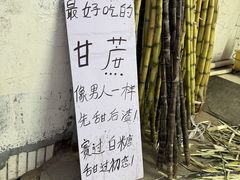 最好吃的
甘蔗
像男人一样
先甜后渣！
赛过白糖
甜过初恋！